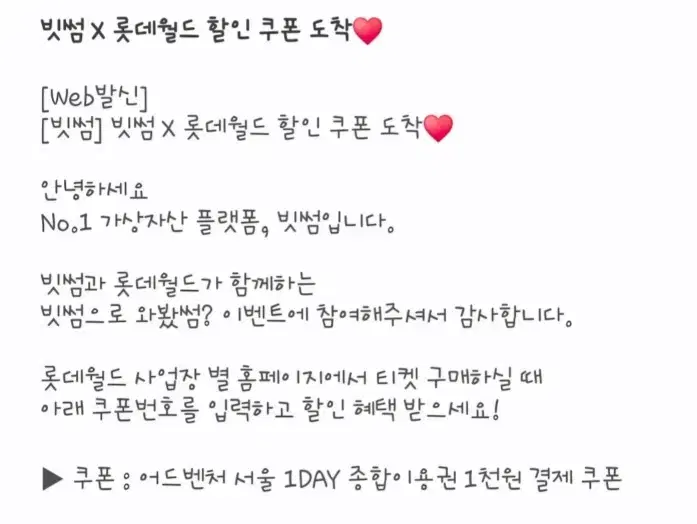 빗썸 X 롯데월드 할인 쿠폰 도착❤️
[Web발신]
[빗썸] 빗썸 X 롯데월드 할인 쿠폰 도착❤️
안녕하세요
No.1 가상자산 플랫폼, 빗썸입니다.
빗썸과 롯데월드가 함께하는
빗썸으로 와봤썸? 이벤트에 참여해주셔서 감사합니다.
롯데월드 사업장 별 홈페이지에서 티켓 구매하실 때
아래 쿠폰번호를 입력하고 할인 혜택 받으세요!
▶ 쿠폰 : 어드벤처 서울 1DAY 종합이용권 1천원 결제 쿠폰